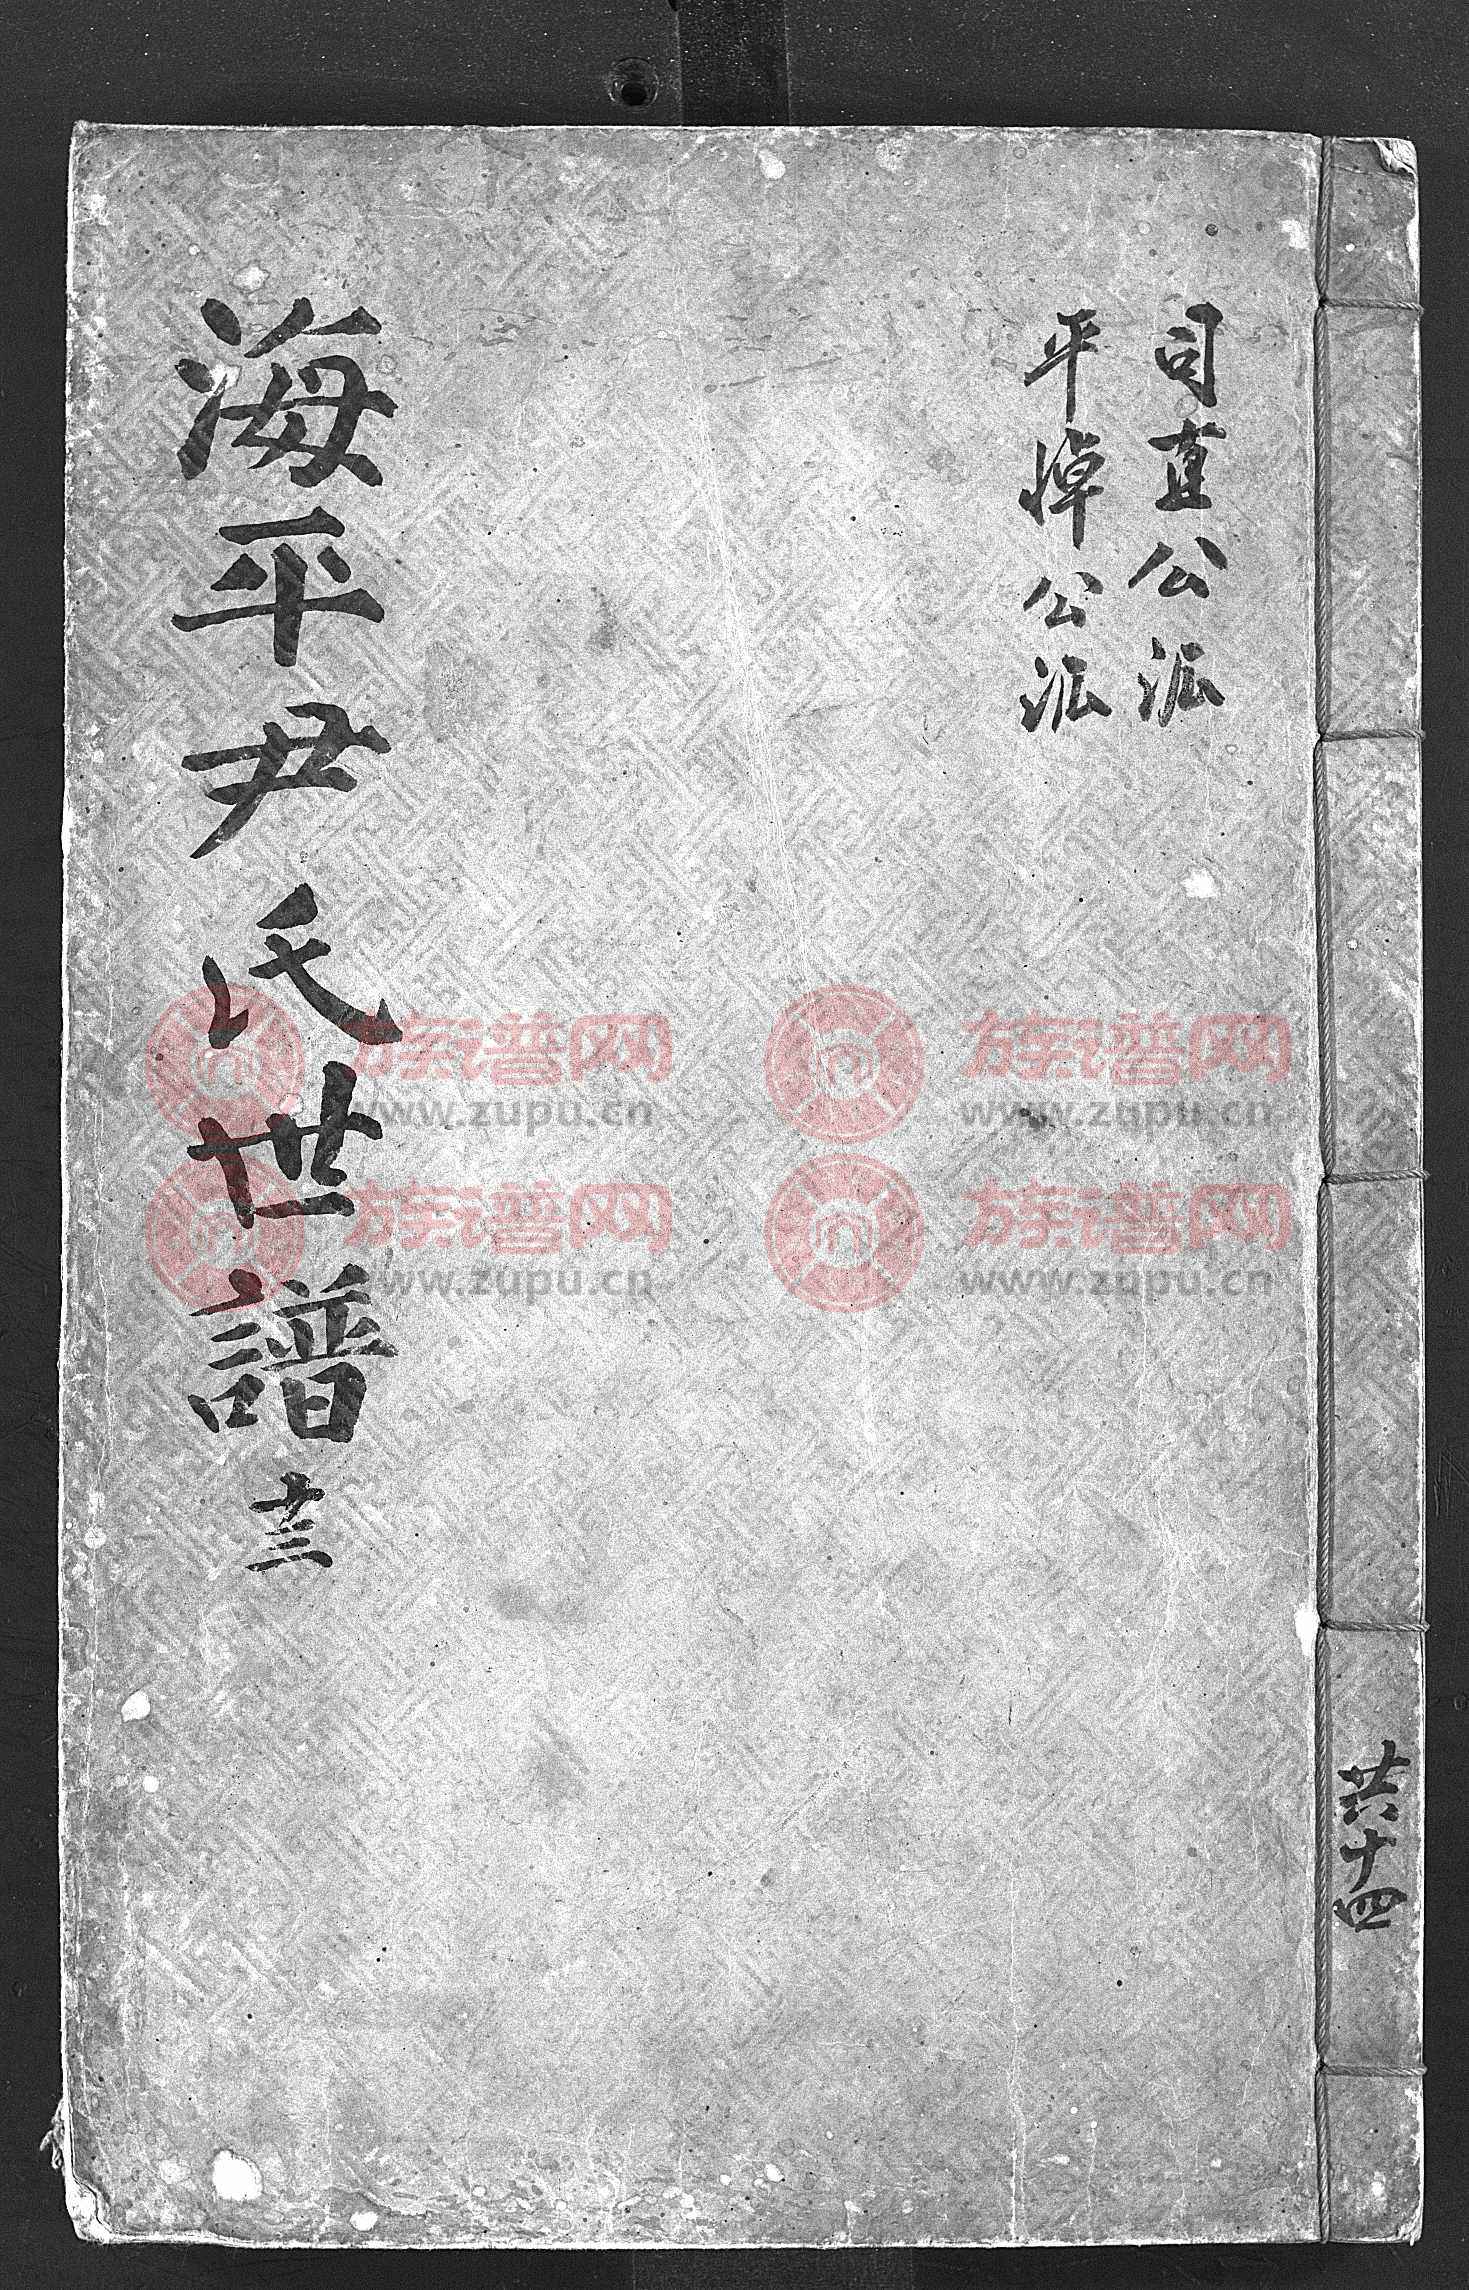 共十四
司直公派
平悼公派
海平尹氏世譜 十三
族谱网
www.zupu.cn
族谱网
www.zupu.cn
族谱网
www.zupu.cn
族谱网
www.zupu.cn